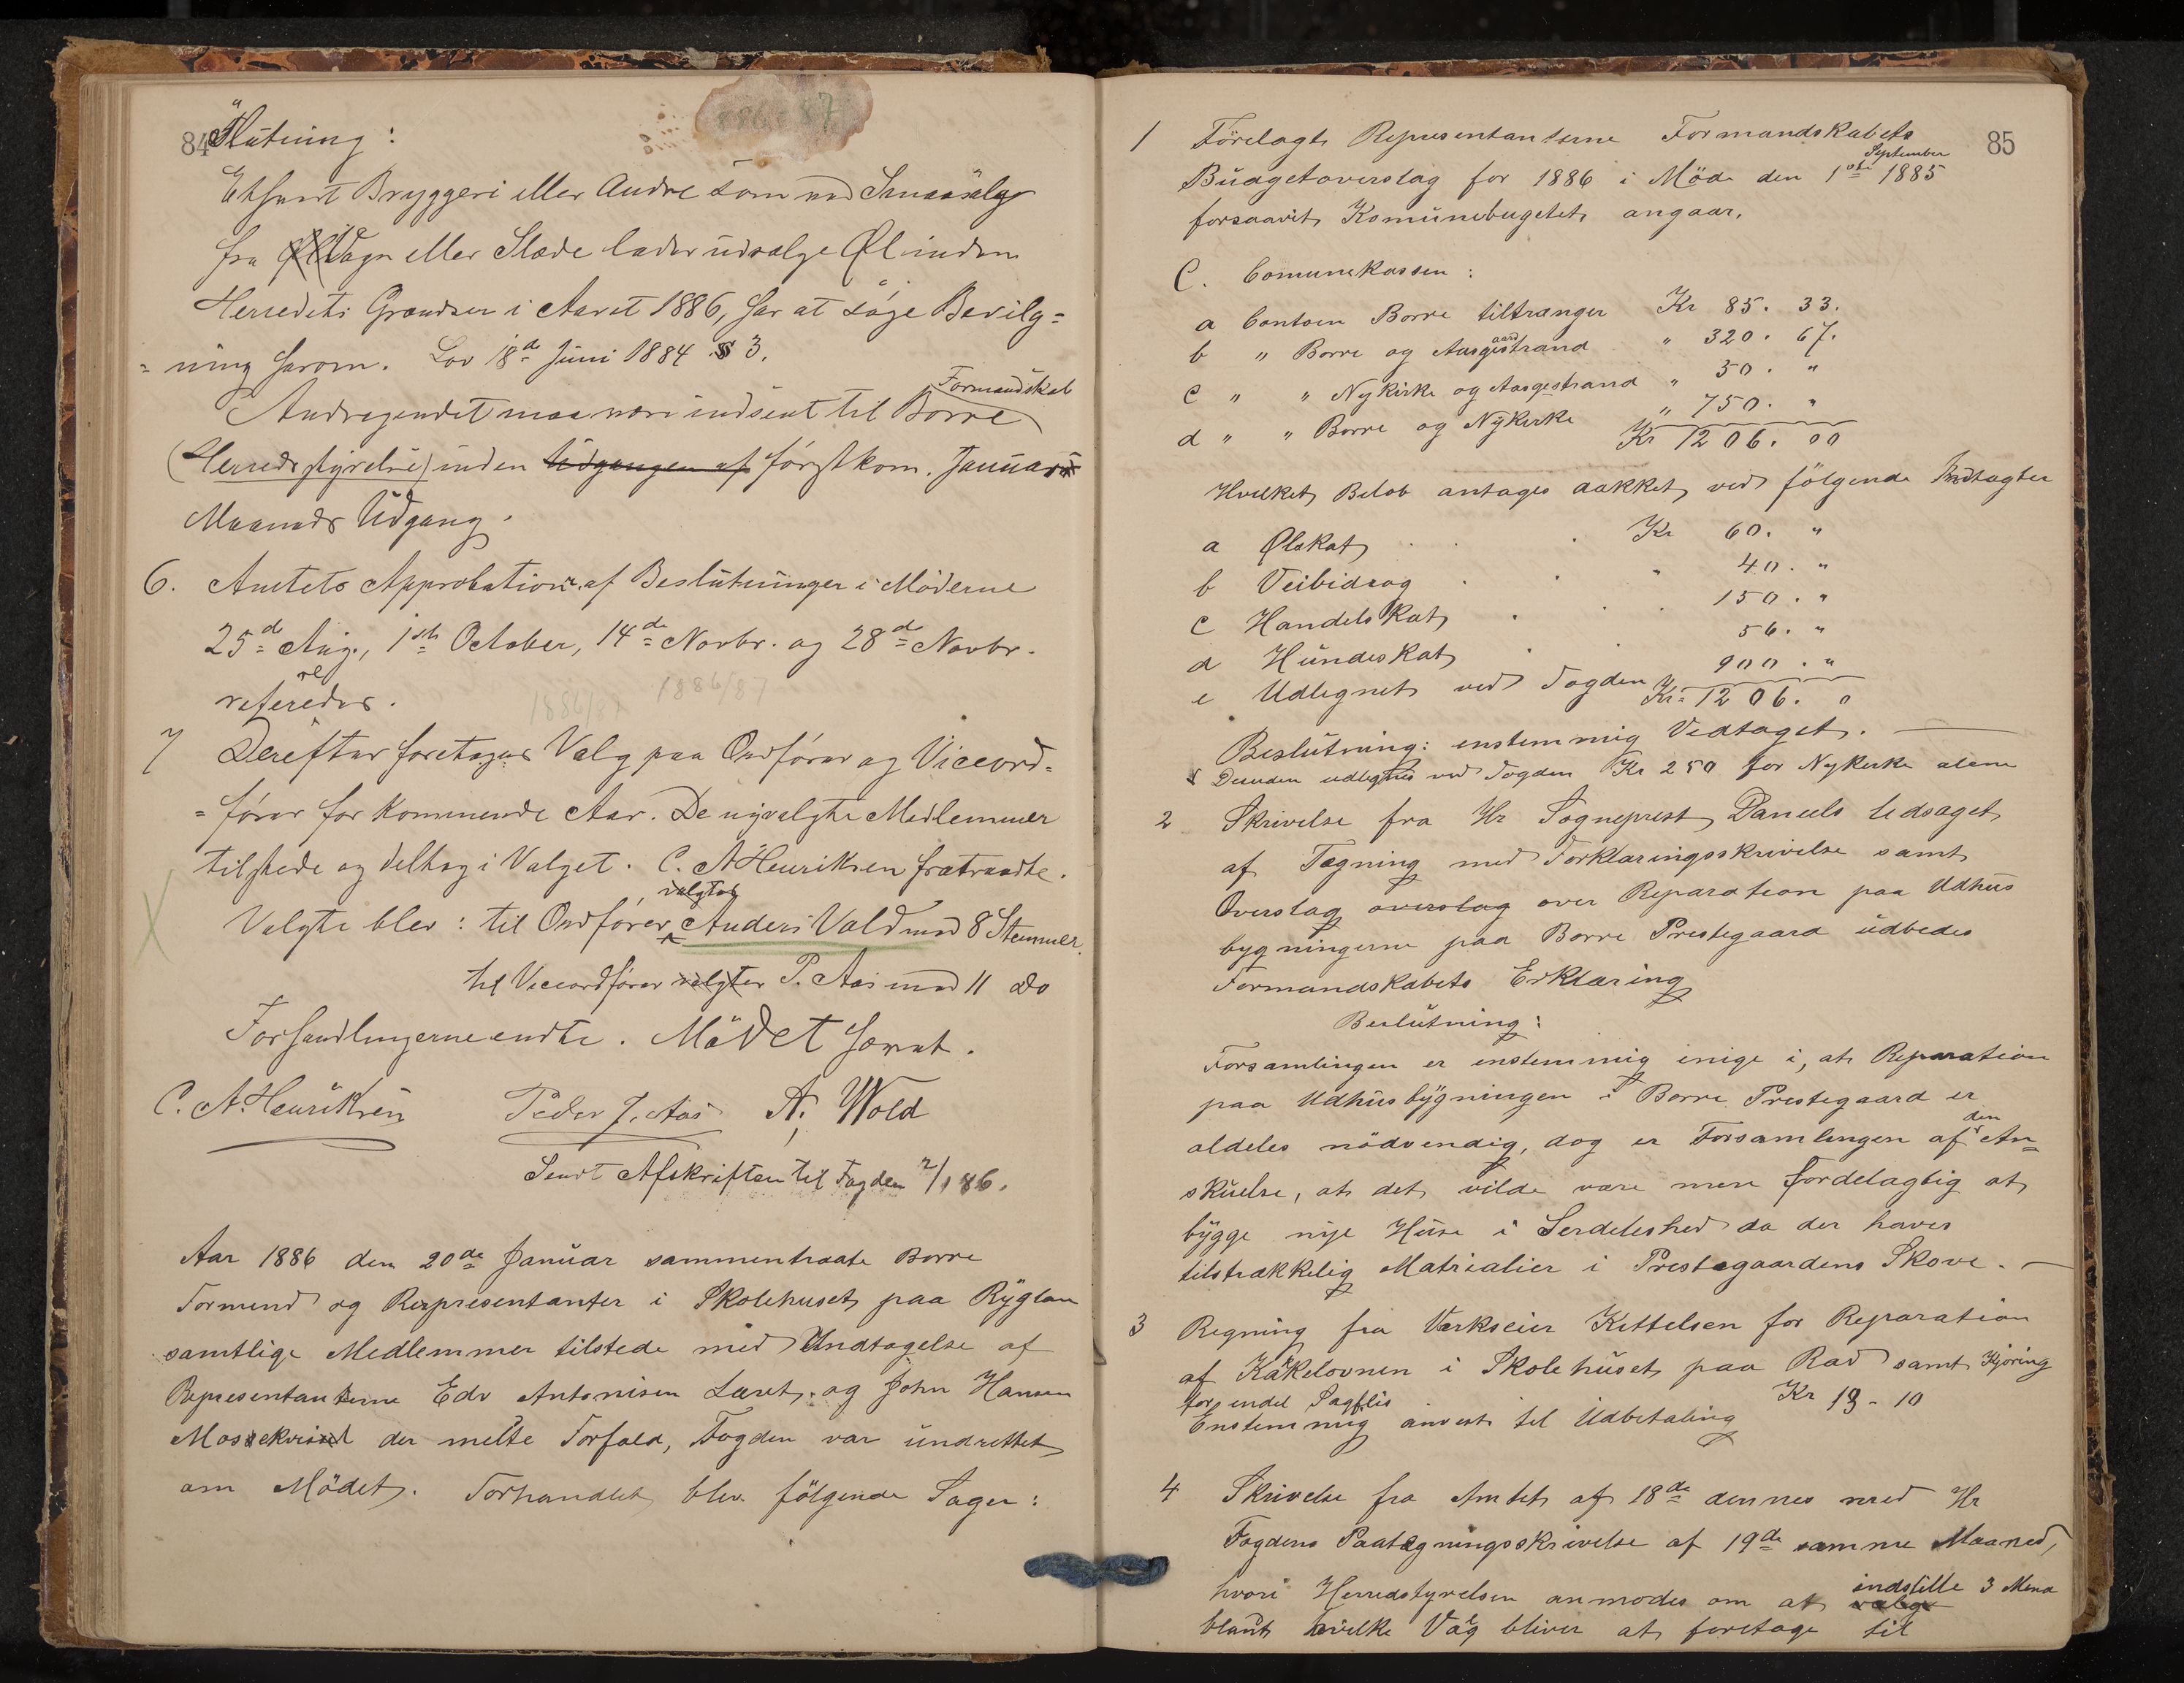 84
Slutning:
Ethvert Bryggeri eller Andre som ved Smaasalg
fra Vogn eller Slæde lader udsælge Øl inden
Herredets Grændser i Aaret 1886, har at søge Bevilg=
=ning herom. Lov 18de Juni 1884 § 3.
Andragendet maa være indsent til Borre Formandskab
(Herredsstyrelse) inden Udgangen af förstkom. Januar
Maaneds Udgang.
6. Amtets Approbation af Beslutninger i Möderne
25de Aug., 1ste October, 14de Novbr. og 28de Novbr.
refereredes.
1886/87 1886/87
7 Derefter foretoges Valg paa Ordförer og Viceord-
=förer for kommende Aar. De nyvalgte Medlemmer
tilstede og deltog i Valget. C. A. Henriksen fratraadte.
Valgte blev: til Ordförer valgtes Anders Vold med 8 Stemmer.
til Viceordförer valgtes P. Aas med 11 do
Forhandlingerne endte. Mödet hævet.
C. A. Henriksen Peder J. Aas A. Wold
Sendt Afskriften til Fogden 2/1 86.
Aar 1886 den 20de Januar sammentraate Borre
Formend og Representanter i Skolehuset paa Ryglan
samtlige Medlemmer tilstede med Undtagelse af
Representanterne Edv Antonisen Læret, og John Hansen
der melte Forfald, Fogden var undrettet
om Mödet. Forhandlet blev fölgende Sager:
85
1 Förelagt Representanterne Formandskabets
Budgetoverslag for 1886 i Möde den 1ste September 1885
forsaavit Komunebugetet angaar.
C. Comunekassen:
a Contoen Borre tiltrænger Kr 85. 33.
b " Borre og Aasgaardstrand " 320. 67.
c " " Nykirke og Aasgestrand " 50. "
d " " Borre og Nykirke " 750. "
Kr 1206. 00
Hvilket Beløb antages dækket ved fölgende Indtægter
a Ølskat Kr 60. "
b Veibidrag " 40. "
c Handelskat 150. "
d Hundeskat 56. "
e Udlignet ved Fogden " 900. "
Kr. 1206. 0
Beslutning: enstemmig Vedtaget.
Desuden udlignes ved Fogden Kr 250 for Nykirke alene
2 Skrivelse fra Hr Sogneprest Daneels ledsaget
af Tegning med Forklaringsskrivelse samt
Overslag overslag over Reparation paa Udhus
bygningerne paa Borre Prestegaard udbedes
Formandskabets Erklæring
Beslutning:
Forsamlingen er enstemmig enige i, at Reparation
paa Udhusbygningen i Borre Prestegaard er
aldeles nödvendig, dog er Forsamlingen af den An=
skuelse, at det vilde være mere fordelagtig at
bygge nye Huse i Serdeleshed da der haves
tilstrækkelig Matrialier i Prestegaardens Skove.
3 Regning fra Værkseier Kittelsen for Reparation
af Kakelovnen i Skolehuset paa Rad samt Kjöring
for endel Sagflis Kr 13-10
Enstemmig anvist til Udbetaling
4 Skrivelse fra Amtet af 18de dennes med Hr
Fogdens Paategningsskrivelse af 19de samme Maaned,
hvori Herredstyrelsen anmodes om at vælge indstille 3 Mend
blant hvilke Valg bliver at foretage til